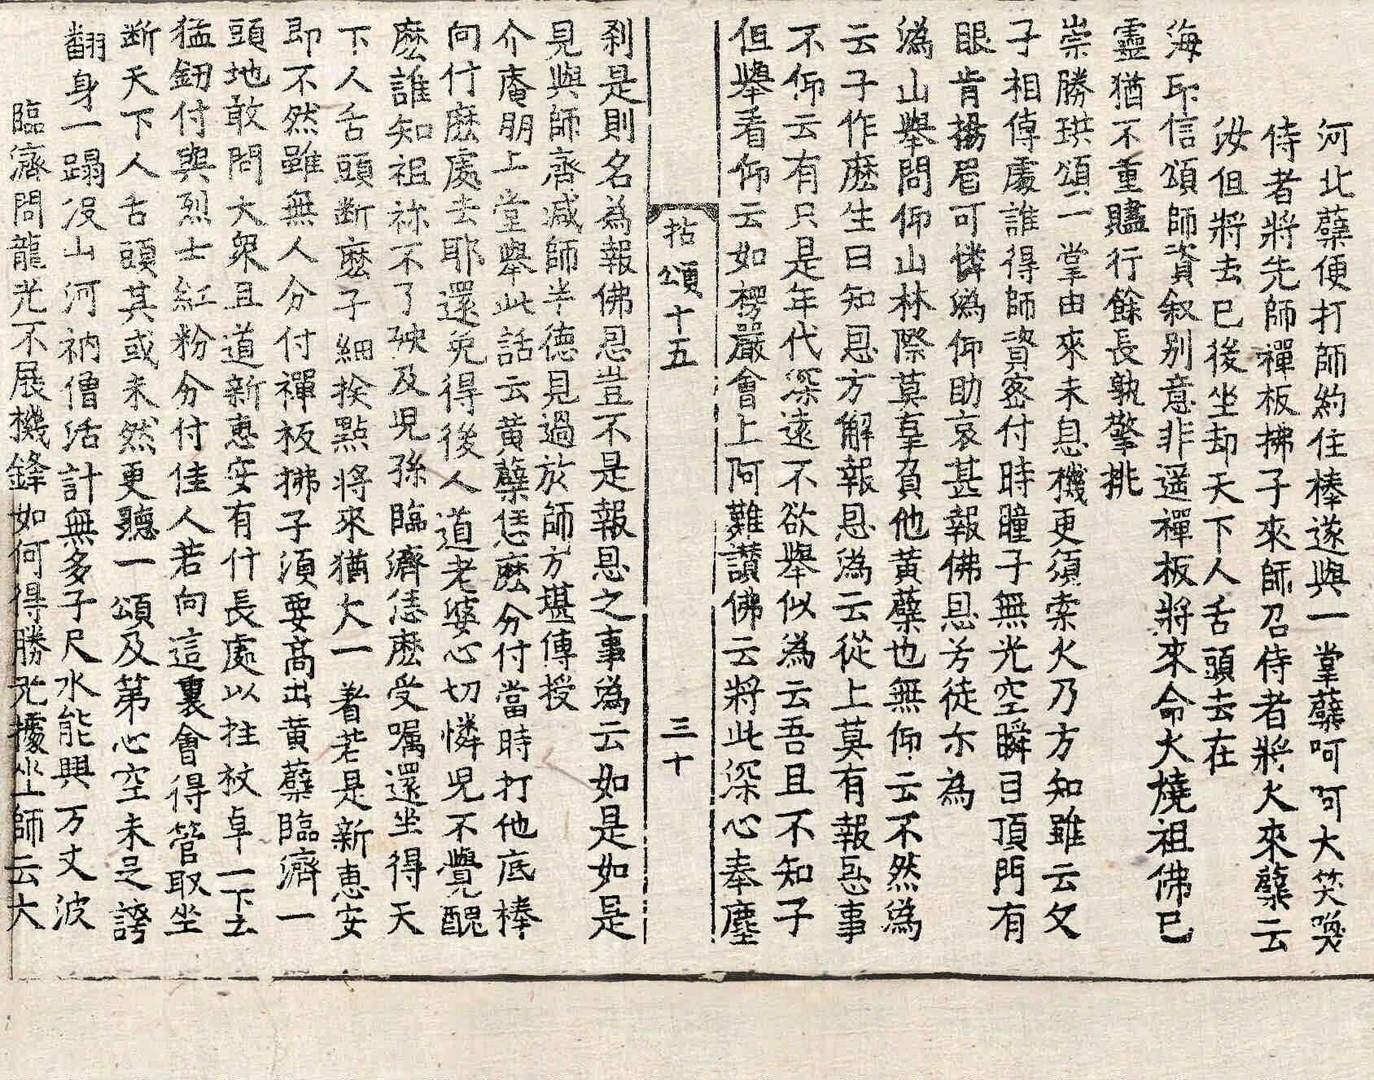 河北蘗便打師約住棒遂與一掌蘗呵呵大笑喚
侍者將先師禪板拂子來師召侍者將火來蘗云
汝但將去已後坐却天下人舌頭去在
海印信頌師資叙別意非遥禪板將來命火燒祖佛已
靈猶不重贐行餘長孰擎挑
崇勝珙頌一掌由來未息機更須索火乃方知雖云父
子相傳處誰得師資密付時瞳子無光空瞬目頂門有
眼肯揚眉可憐潙仰助哀甚報佛恩芳徒尒為
潙山舉問仰山林際莫辜負他黃蘗也無仰云不然潙
云子作麽生曰知恩方解報恩潙云從上莫有報恩事
不仰云有只是年代深遠不欲舉似潙云吾且不知子
但舉看仰云如楞嚴會上阿難讃佛云將此深心奉塵
拈頌十五 三十
刹是則名為報佛恩豈不是報恩之事潙云如是如是
見與師齊减師半德見過於師方堪傳授
介庵朋上堂舉此話云黃蘗恁麽分付當時打他底棒
向什麽處去耶還免得後人道老婆心切憐児不覺醜
麽誰知祖祢不了殃及児孫臨濟恁麽受嘱還坐得天
下人舌頭断麽子細挨點將來猶欠一着若是新恵安
即不然雖無人分付禪板拂子湏要高出黃蘗臨濟一
頭地敢問大衆且道新恵安有什長處以拄杖卓一下云
猛釰付與烈士紅粉分付佳人若向這裏會得管取坐
断天下人舌頭其或未然更聽一頌及第心空未足誇
翻身一蹋没山河衲僧活計無多子尺水能興万丈波
臨濟問龍光不展機鋒如何得勝光據坐師云大